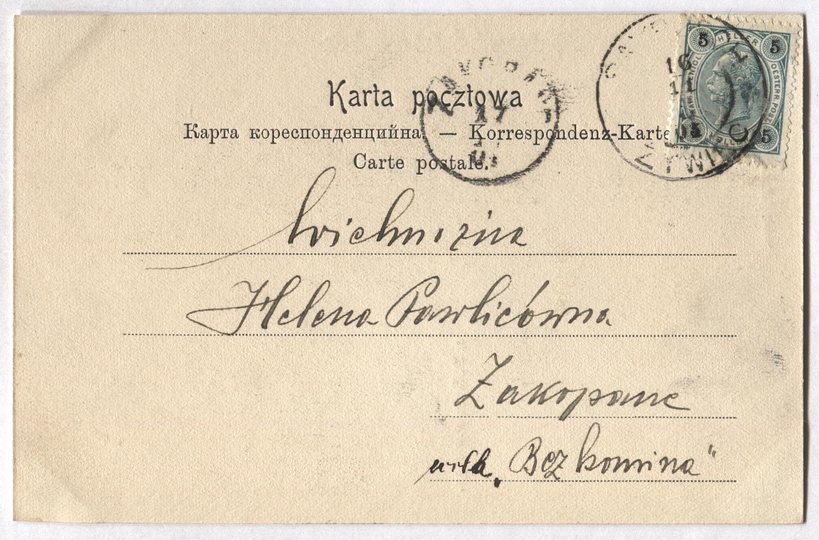 Karta pocztowa
Карта кореспонденцийна. — Korrespondenz-Karte
Carte postale.
5 HELLER 5
5
17
16
11
03
Wielmożna
Helena Pawlicówna
Zakopane
willa „Bez komina"